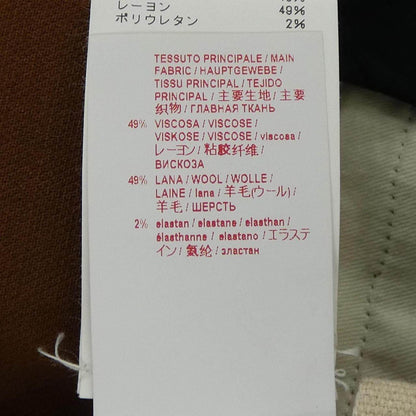 レーヨン 49%
ポリウレタン 2%
TESSUTO PRINCIPALE / MAIN
FABRIC / HAUPTGEWEBE /
TISSU PRINCIPAL / TEJIDO
PRINCIPAL / 主要生地 / 主要
织物 / ГЛАВНАЯ ТКАНЬ
49% VISCOSA / VISCOSE /
VISKOSE / VISCOSE / viscosa /
レーヨン / 粘胶纤维 /
ВИСКОЗА
49% LANA / WOOL / WOLLE /
LAINE / lana / 羊毛(ウール) /
羊毛 / ШЕРСТЬ
2% elastan / elastane / elasthan /
élasthanne / elastano / エラステ
イン / 氨纶 / эластан